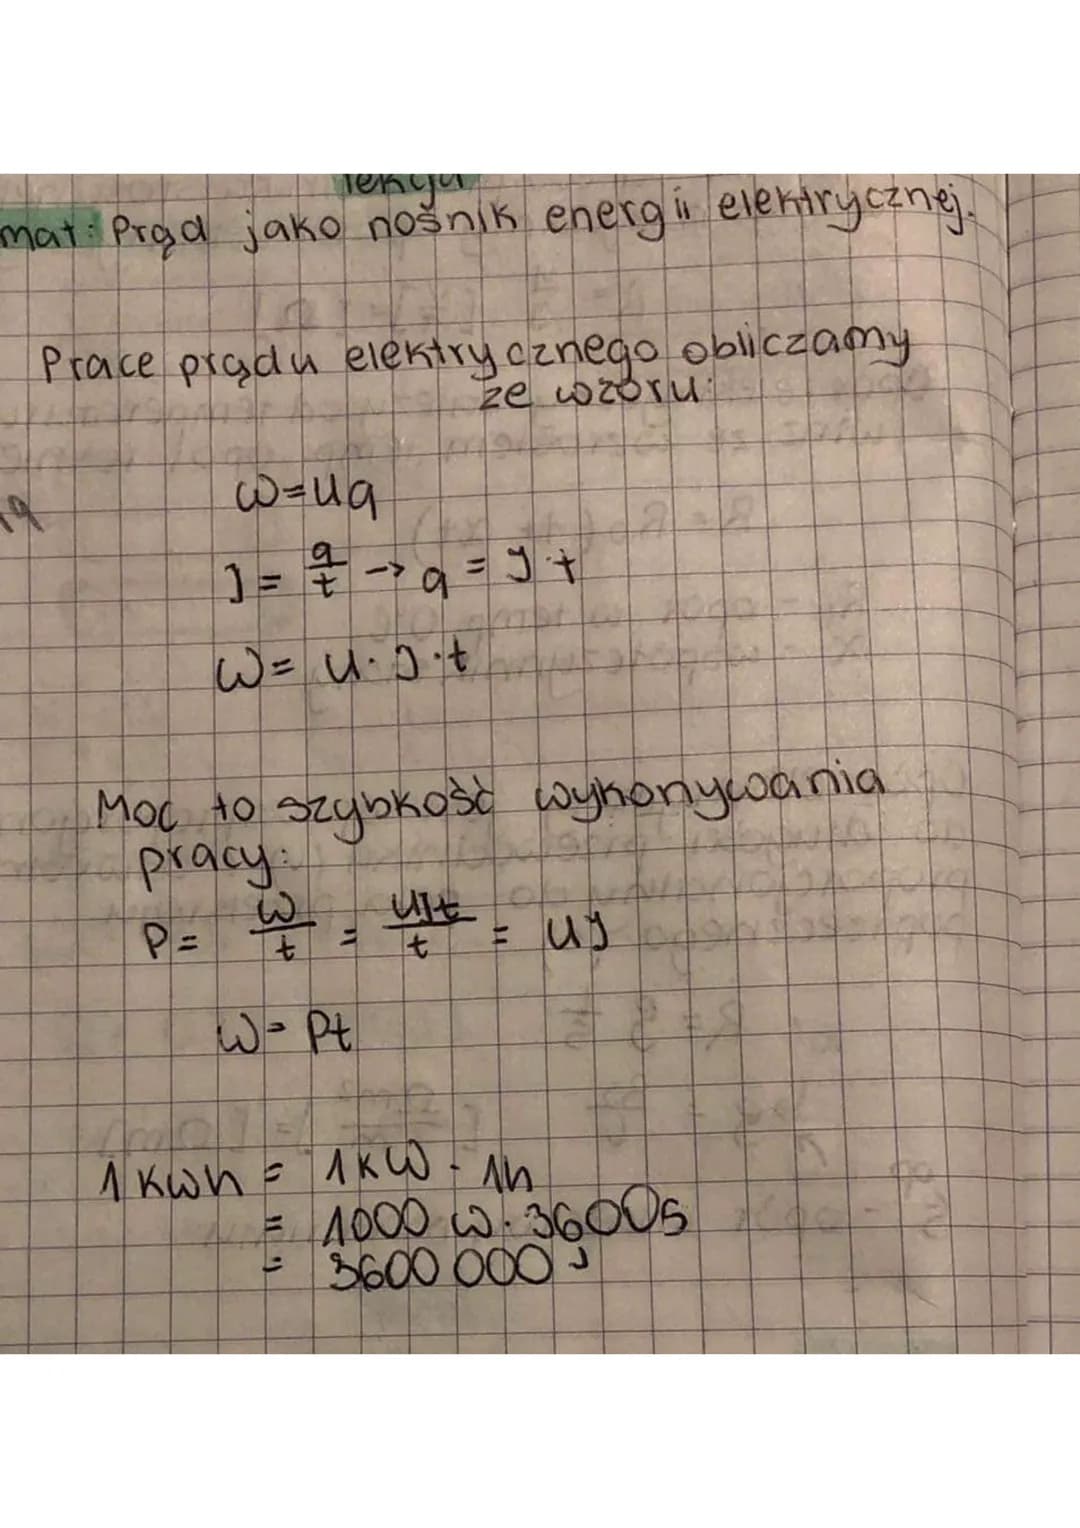 lekcja
mat: Prąd jako nośnik energii elektrycznej.
Prace prądu elektrycznego obliczamy
ze wzoru:
W=Uq
J = q/t → q = J·t
W = U·J·t
Moc to szybkość wykonywania
pracy:
P = W/t = UJt/t = UJ
W = Pt
1 kWh = 1kW · 1h
= 1000 W · 3600s
= 3600 000 J